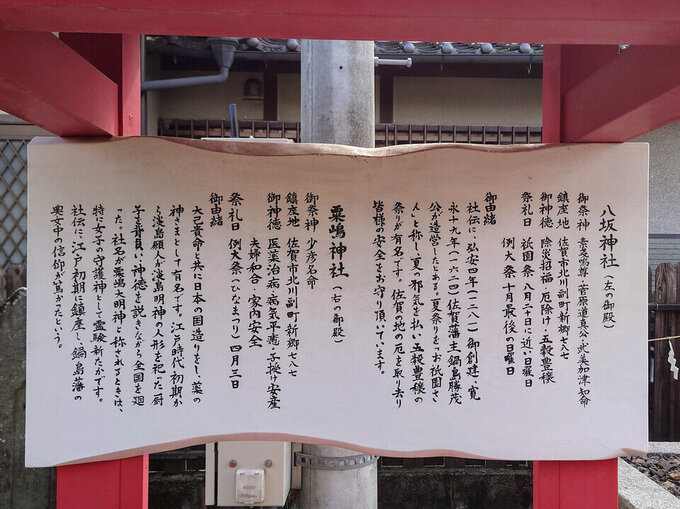 八坂神社（左の御殿）
御祭神 素戔嗚尊・菅原道真公・武美加津知命
鎮座地 佐賀市北川副町新郷七八七
御神徳 除災招福・厄除け・五穀豊穣
祭礼日 祇園祭 八月二十日に近い日曜日
例大祭 十月最後の日曜日
御由緒
社伝に、弘安四年（一二八一）御創建、寛
永十九年（一六四二）佐賀藩主鍋島勝茂
公が造営したとある。夏祭りを「お祇園さ
ん」と称し夏の邪気を払い五穀豊穣の
祭りが有名です。佐賀の地の厄を取り去り
皆様の安全をお守り頂いています。
粟嶋神社（右の御殿）
御祭神 少彦名命
鎮座地 佐賀市北川副町新郷七八七
御神徳 医薬治病・病気平癒・子授け安産
夫婦和合・家内安全
祭礼日 例大祭（ひなまつり）四月三日
御由緒
大己貴命と共に日本の国造りをし、薬の
神さまとして有名です。江戸時代初期か
ら淡島願人が淡島明神の人形を祀った厨
子を背負い、神徳を説きながら全国を廻
った。社名が粟嶋大明神と称されるときは、
特に女子の守護神として霊験新たかです。
社伝に、江戸初期に鎮座し、鍋島藩の
奥女中の信仰が篤かったという。